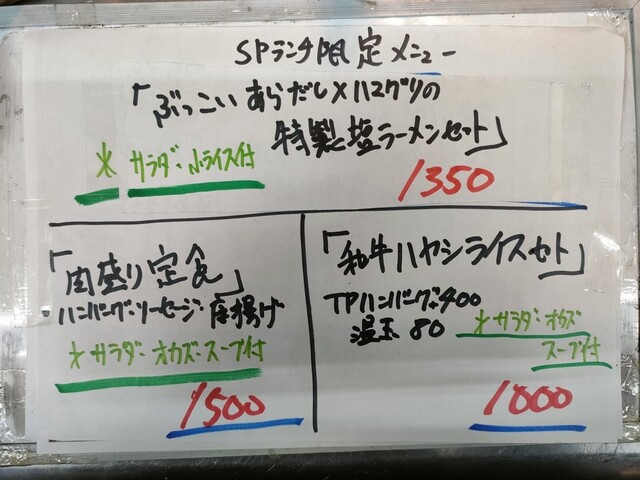 SPランチ限定メニュー
「ぶっこいあらだし×ハマグリの
特製塩ラーメンセット」
* サラダ・小ライス付
1350
「肉盛り定食」
ハンバーグ・ソーセージ・唐揚げ
* サラダ・オカズ・スープ付
1500
「和牛ハヤシライスセット」
TPハンバーグ:400
温玉 80
* サラダ・オカズ
スープ付
1000